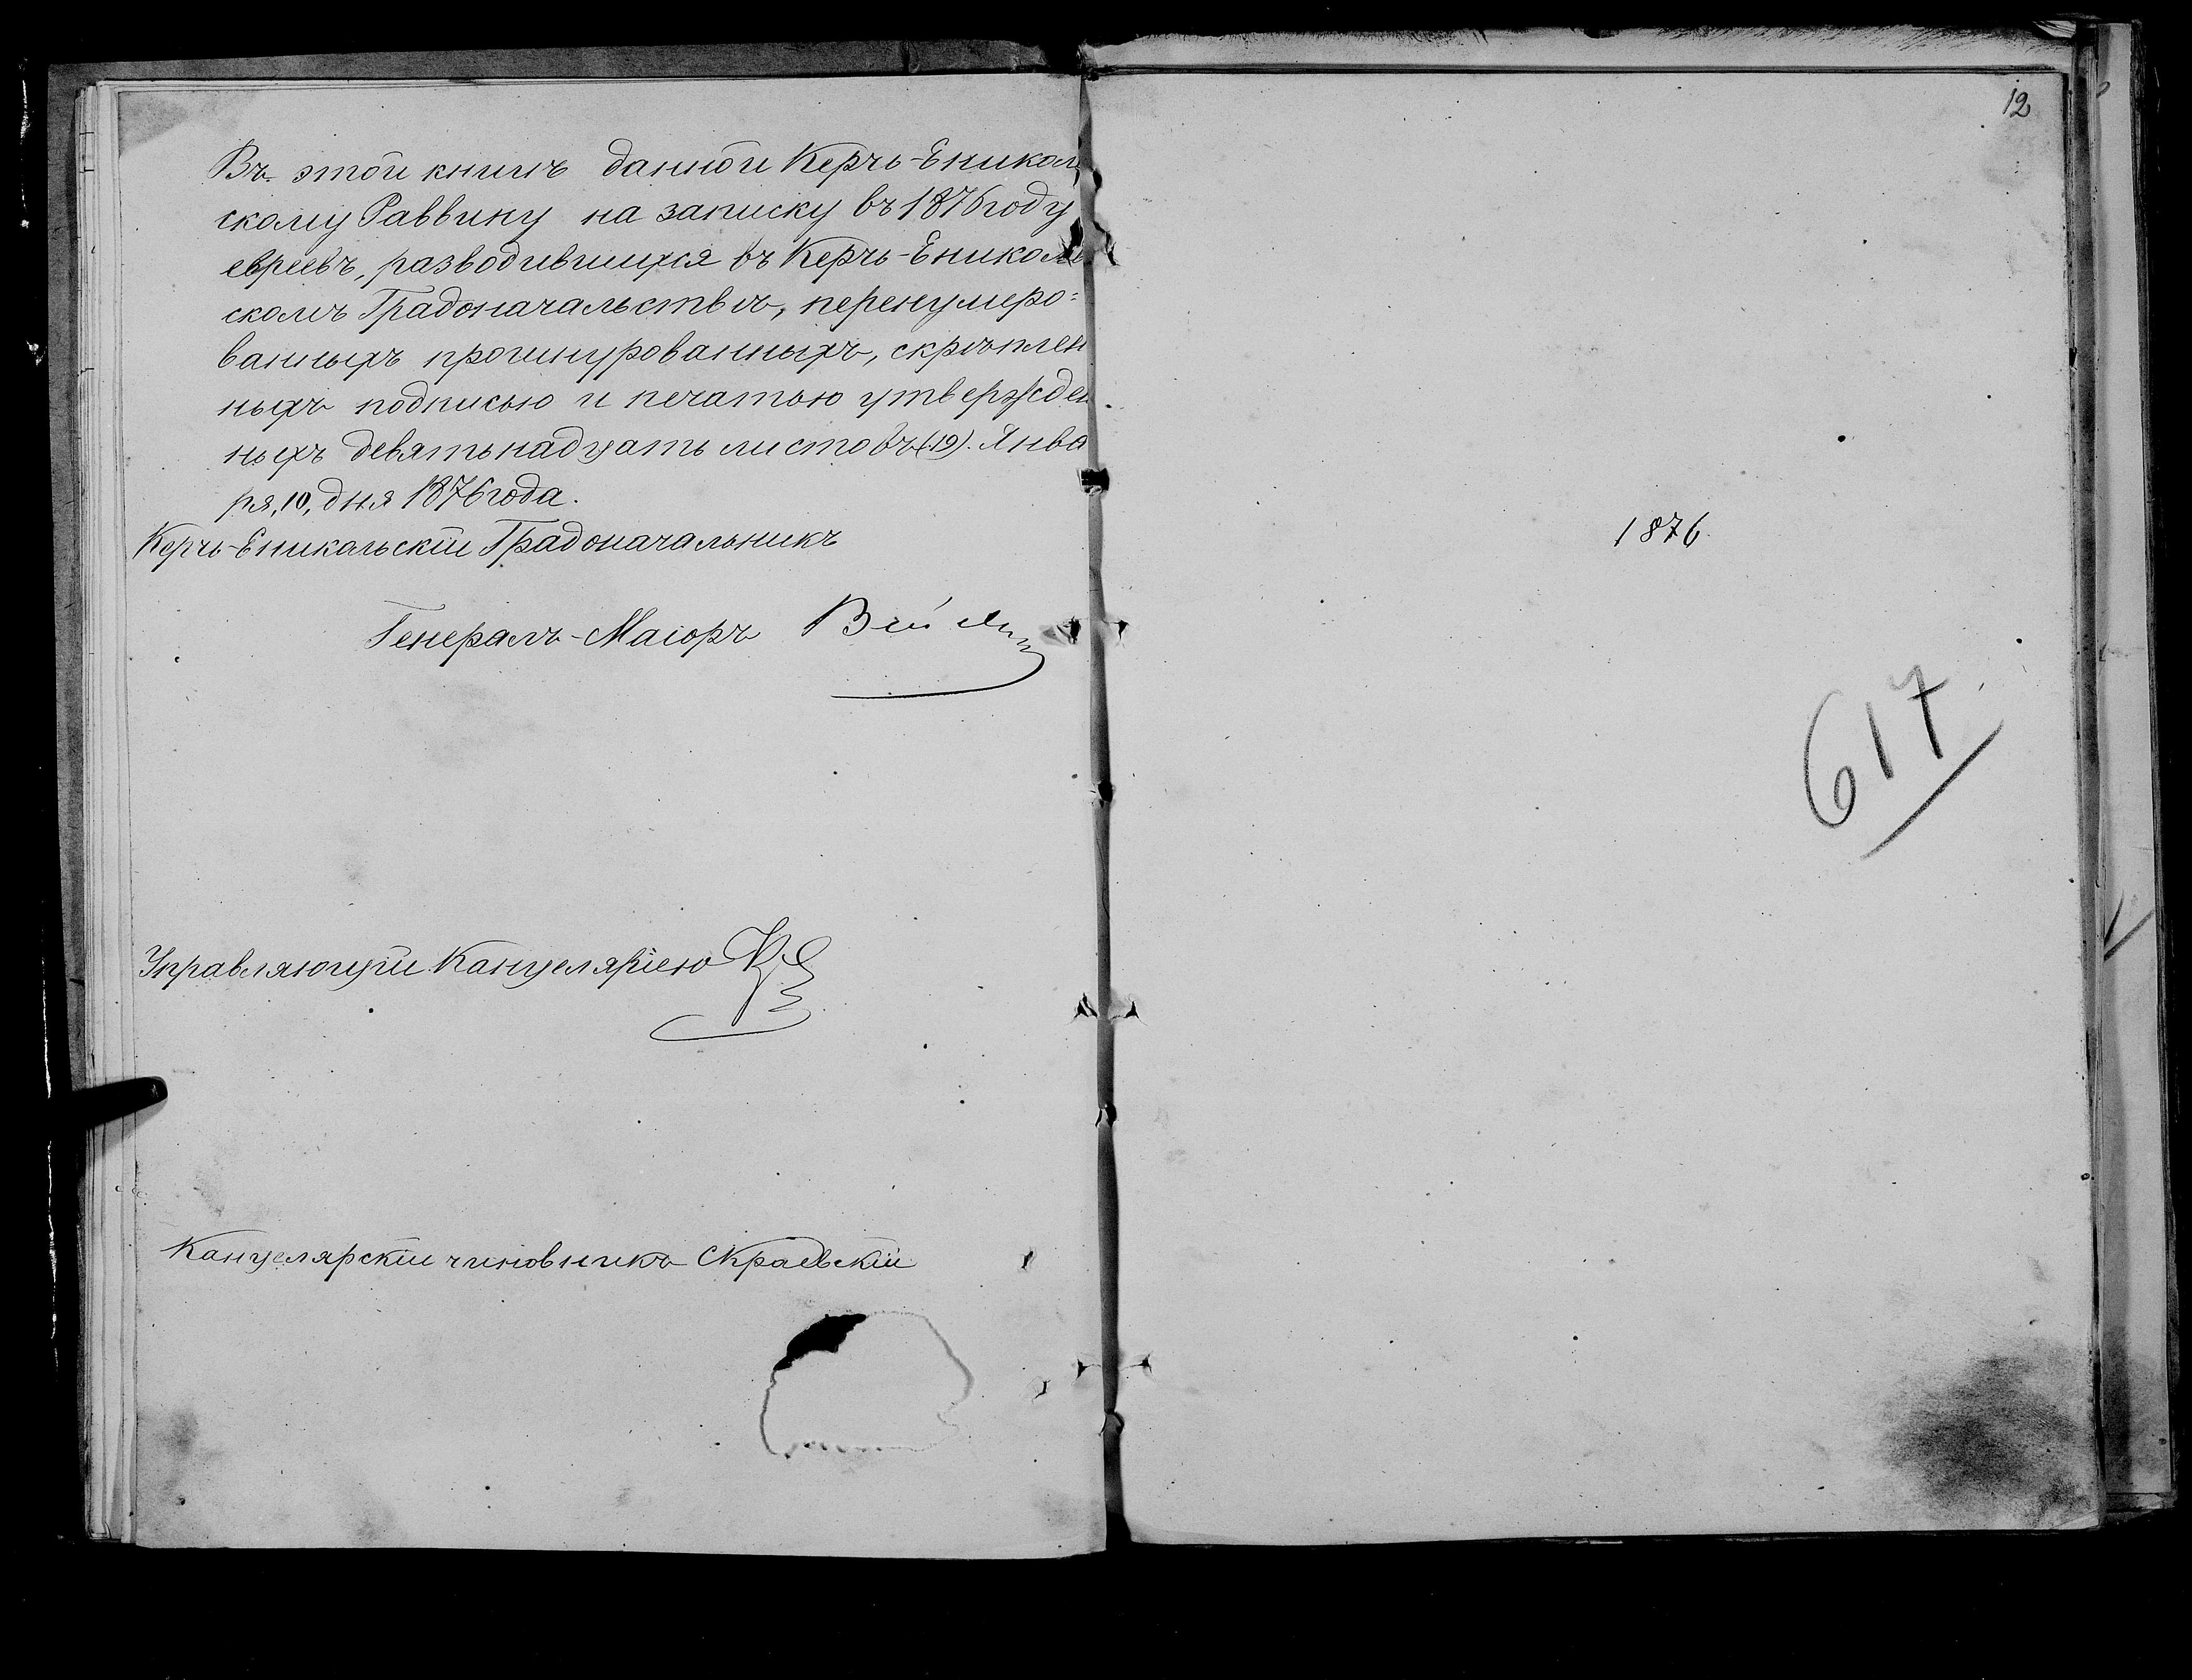 Въ этой книгѣ данной Керчь-Ениколь
скому Раввину на записку въ 1876 году
евреевъ, разводившихся въ Керчь-Ениколь
скомъ Градоначальствѣ, перенумеро=
ванныхъ прошнурованныхъ, скрѣплен
ныхъ подписью и печатью утвержден
ныхъ девятьнадцать листовъ (19). Янва
ря, 10, дня 1876 года.
Керчь-Еникальскій Градоначальникъ
Генералъ-Маіоръ
Управляющій Канцеляріею
Канцелярскій чиновникъ Скраевскій
12
1876.
617